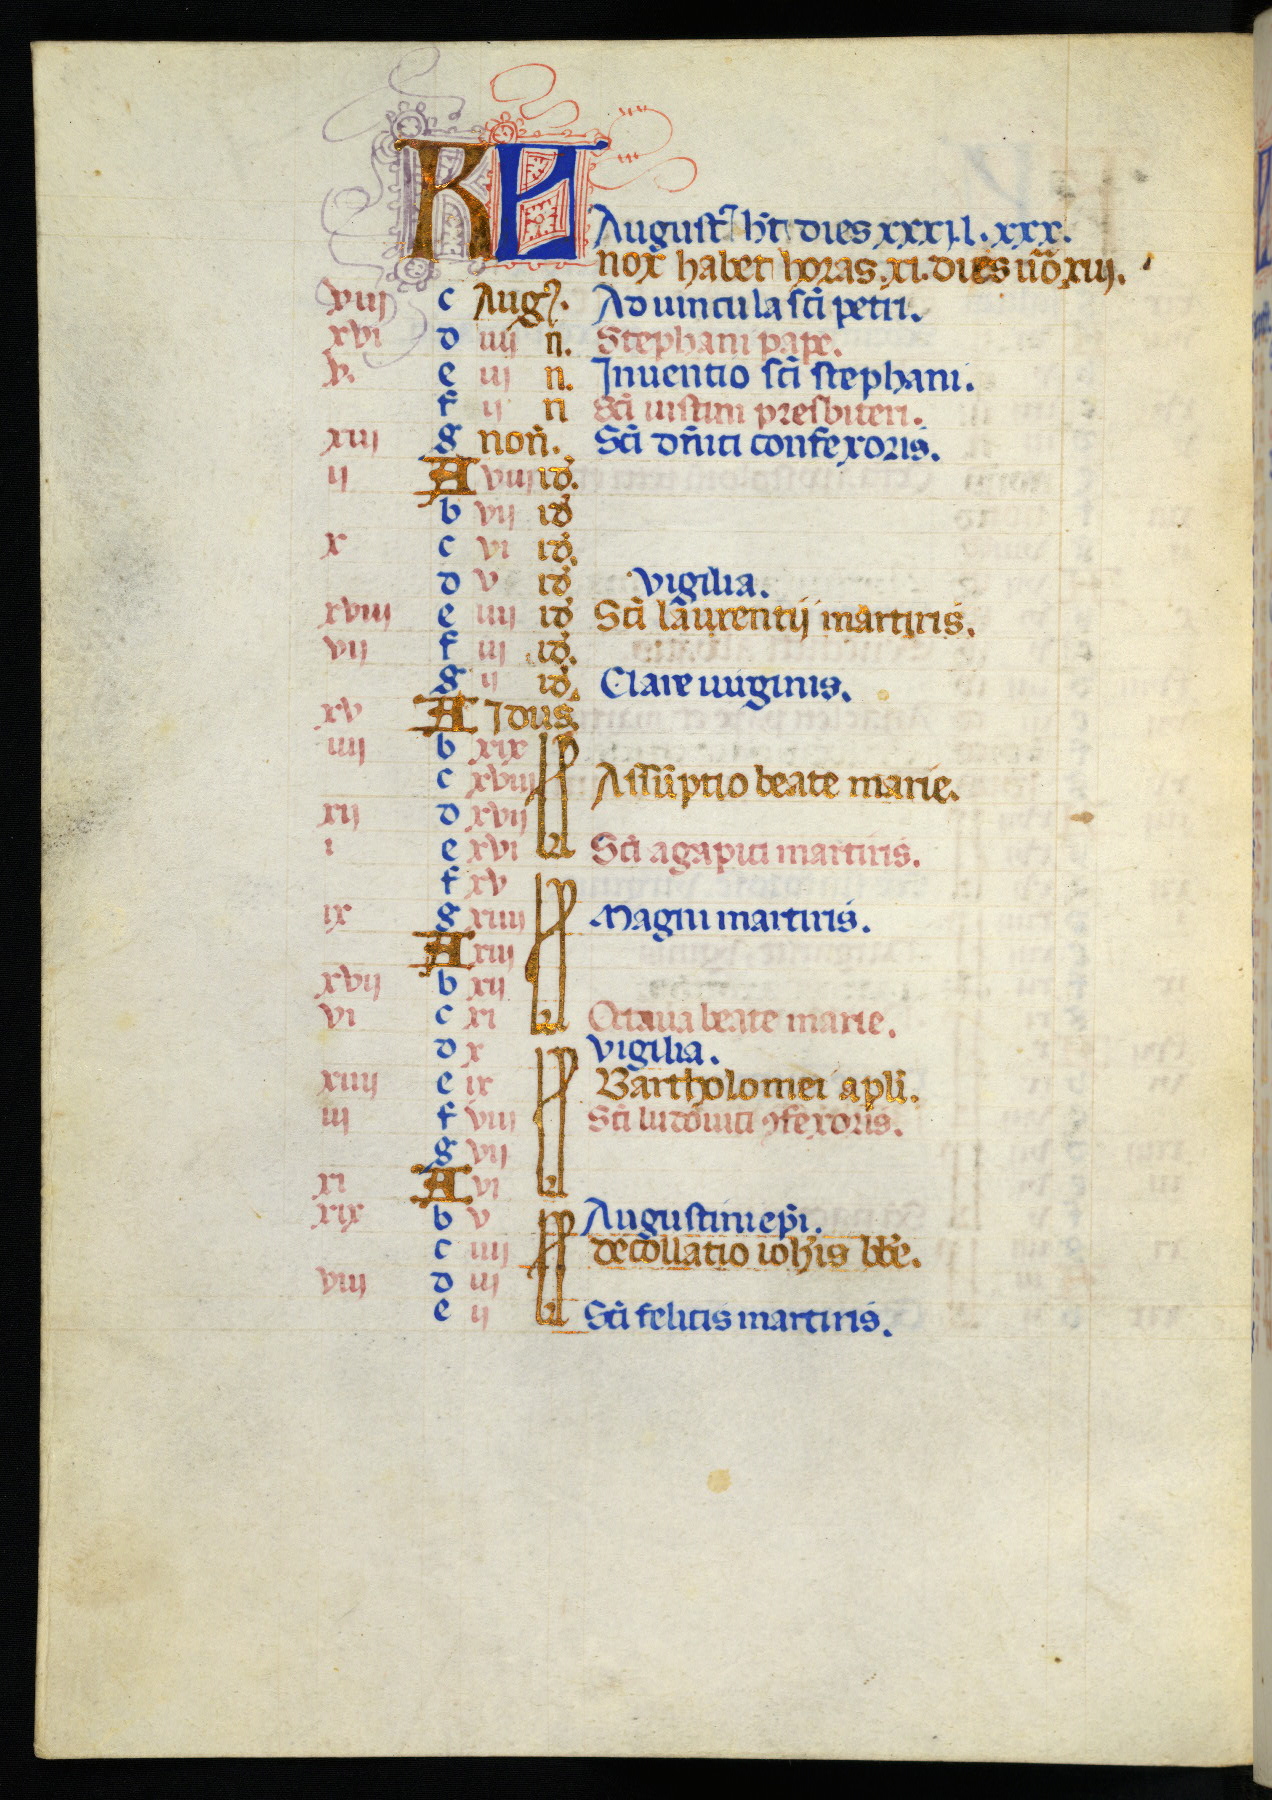 KL
August᷒ hn̄t dies xxxi. l. xxx.
nox habet horas. xi. dies ũo xiii.
viii c Aug᷒. Ad uincula sc̄i petri.
xvi d iiii n. Stephani pape.
v. e iii n. Inuentio sc̄i stephani.
f ii n Sc̄i iustini presbiteri.
xiii g non̄. Sc̄i dn̄ici confexoris.
ii A viii id.
b vii id
x c vi id.
d v id vigilia.
xviii e iiii id Sc̄i laurentij martiris.
vii f iii id.
g ii id. Clare uirginis.
xv A Idus.
iiii b xix kl
c xviii Assūptio beate marie.
xii d xvii
i e xvi Sc̄i agapiti martiris.
f xv kl
ix g xiiii Magni martiris.
A xiii
xvii b xii
vi c xi Octaua beate marie.
d x kl vigilia.
xiiii e ix Bartholomei apli̅.
iii f viii Sc̄i ludouici ꝯfexoris.
g vii
xi A vi
xix b v kl Augustini ep̄i.
c iiii decollatio ioh̄is bb̄e.
viii d iii
e ii Sc̄i felicis martiris.